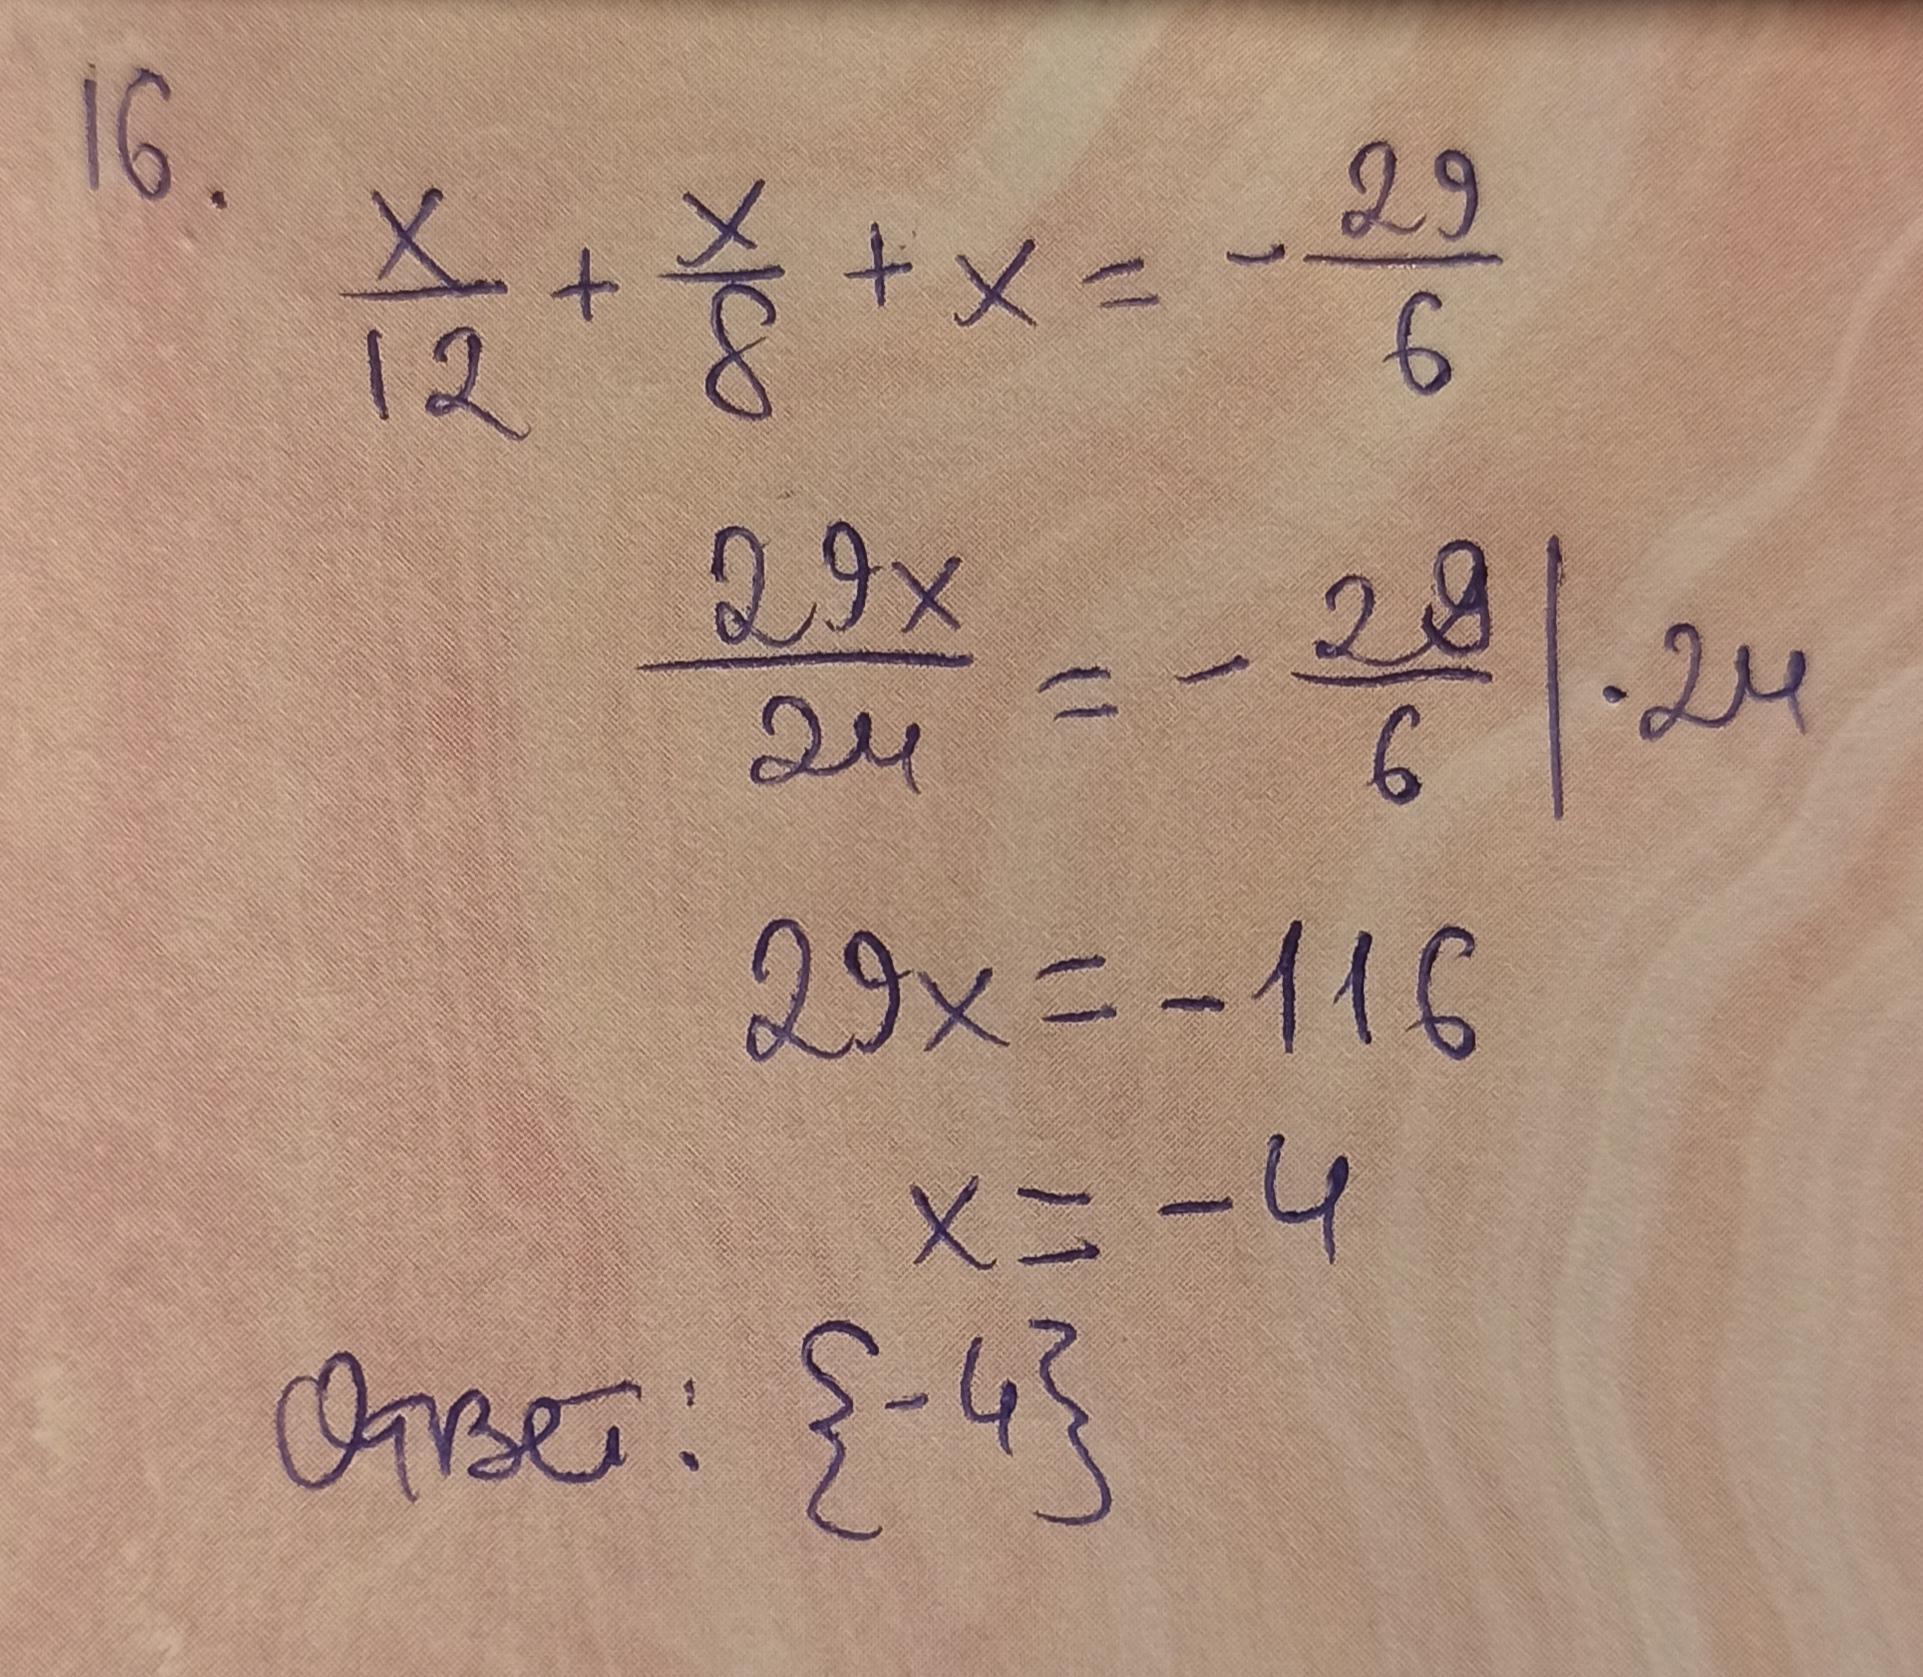 16.
x/12 + x/8 + x = - 29/6
29x/24 = - 29/6 | · 24
29x = - 116
x = - 4
Ответ: {-4}